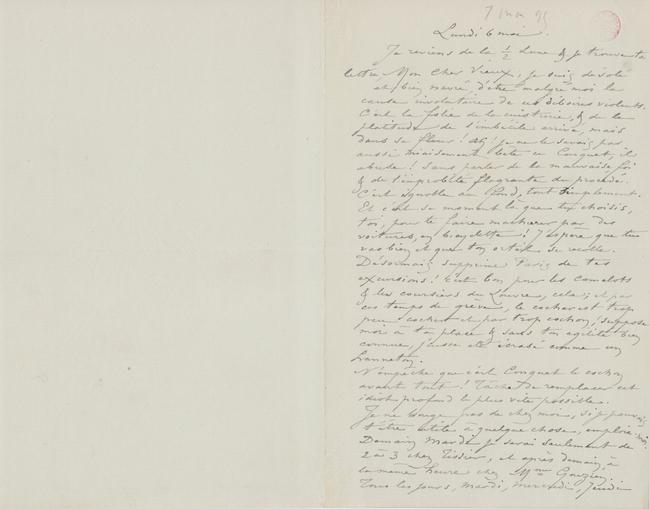 7 mai 95
Lundi 6 mai.
Je reviens de la ½ Lune & je trouve ta
lettre, Mon Cher Vieux, je suis désolé
et bien navré, d'être malgré moi la
cause involontaire de ces déboires violents.
C'est la folie de la cuistrerie, & de la
platitude de l'imbécile arrivé, mais
dans sa fleur! je ne le savais pas
aussi niaisement bête ce Conquet, il
abuse! sans parler de la mauvaise foi
& de l'improbité flagrante du procédé.
C'est ignoble au fond, tout simplement.
Et c'est ce moment là que tu choisis,
toi, pour te faire par des
voitures, en bicyclette! J'espère que tu
vas bien et que ton se recolle.
Désormais supprime Paris de tes
excursions! C'est bon pour les camelots
& les coursiers du Louvre, cela; et par
ces temps de grève, le cocher est trop
peu cocher et par trop cochon; suppose
moi à ta place & sans ton agilité bien
connue, j'eusse été écrasé comme un
hanneton.
N'empêche que c'est Conquet le cochon
avant tout! Tâche de remplacer cet
idiot profond le plus vite possible.
Je ne bouge pas de chez moi, si je pouvais
t'être utile à quelque chose, emploie moi.
Demain Mardi je serai seulement de
2 à 3 chez Tissier, et après demain, à
la même heure chez Mme
Tous les jours, mardi, mercredi, jeudi